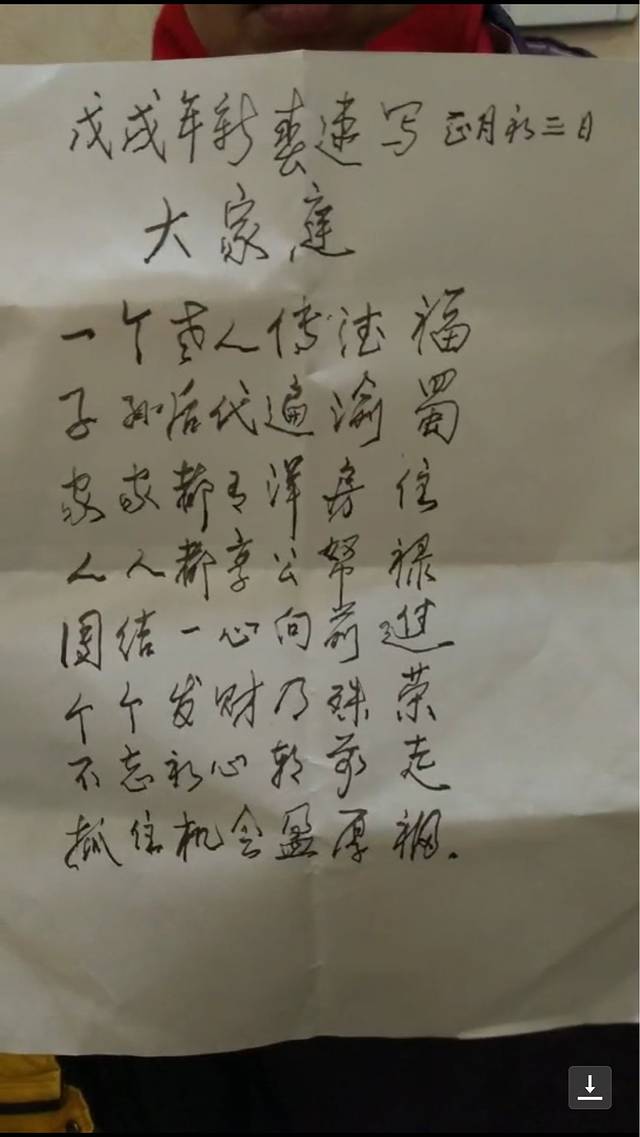 戊戌年新春速写 正月初三日
大家庭
一个老人传德福
子孙后代遍渝蜀
家家都有洋房住
人人都享公帑禄
团结一心向前进
个个发财乃殊荣
不忘初心朝前走
抓住机会盈厚福.